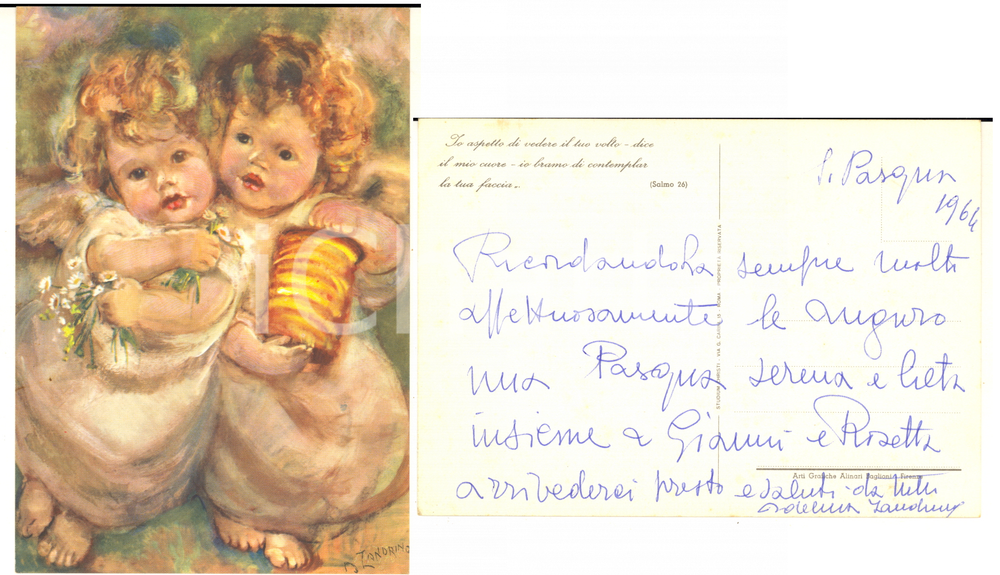 A. ZANDRINO
Io aspetto di vedere il tuo volto - dice
il mio cuore - io bramo di contemplar
la tua faccia..
(Salmo 26)
S. Pasqua
1964
Ricordandola sempre molto
affettuosamente le auguro
una Pasqua serena e lieta
insieme a Gianni e Rosetta
arrivederci presto e saluti da tutti
Adelina Zandrino
PROPRIETÀ RISERVATA
Arti Grafiche Alinari Baglioni - Firenze